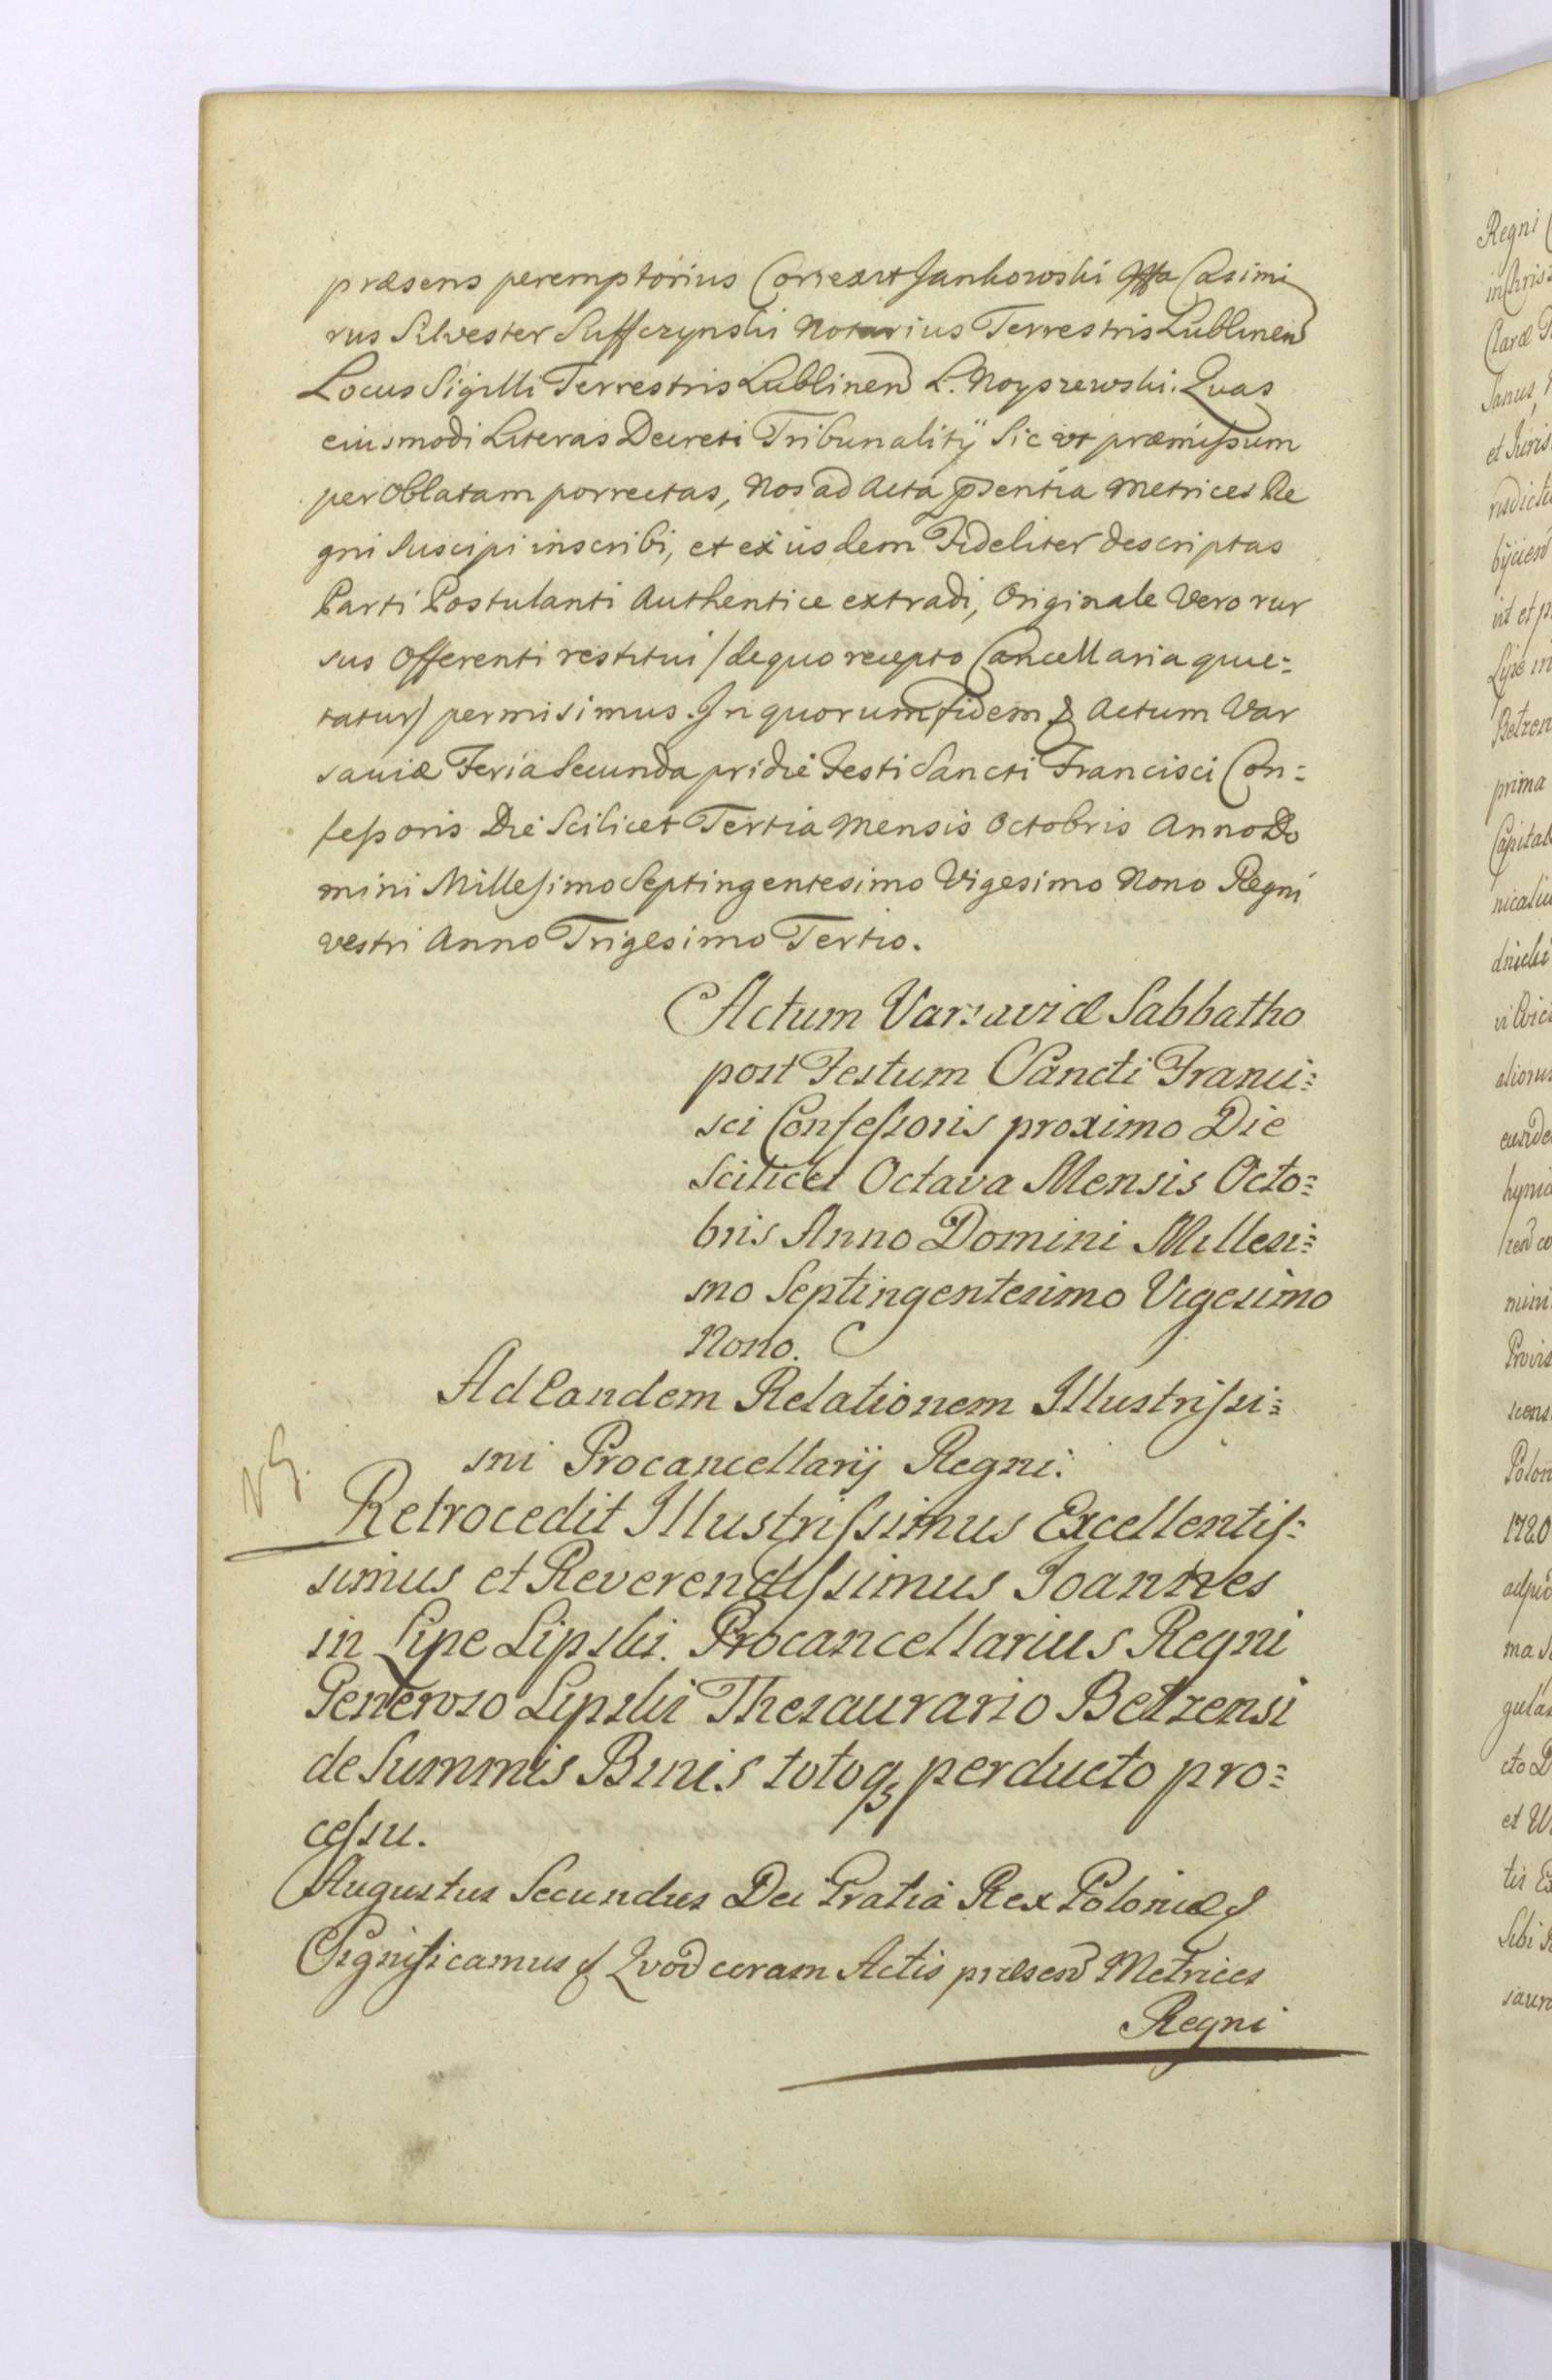 præsens peremptorius Correxit Jankowski Casimi
rus Silvester Suffczynski Notarius Terrestris Lublinen
Locus Sigilli Terrestris Lublinen L. Noyszewski. Quas
eiusmodi Literas Decreti Tribunalitÿ Sic ut præmissum
per Oblatam porrectas, Nos ad Acta pṙsentia Metrices Re
gni suscipi inscribi, et ex iisdem Fideliter descriptas
Parti Postulanti Authentice extradi, Originale Vero rur
sus Offerenti restitui /: de quo recepto Cancellaria quie=
tatur/ permisimus. In quorum fidem & Actum Var
saviæ Feria Secunda pridie Festi Sancti Francisci Con=
fessoris Die Scilicet Tertia Mensis Octobris Anno Do
mini Millesimo Septingentesimo Vigesimo Nono Regni
vestri Anno Trigesimo Tertio.
Actum Varsaviæ Sabbatho
post Festum Sancti Franci=
sci Confessoris proximo Die
Scilicet Octava Mensis Octo=
bris Anno Domini Millesi=
mo Septingentesimo Vigesimo
Nono.
Ad Eandem Relationem Illustrissi=
mi Procancellarij Regni.
Retrocedit Illustrissimus Excellentis=
simus et Reverendissimus Joannes
in Lipe Lipski. Procancellarius Regni
Generoso Lipski Thesaurario Betzensi
de Summis Binis totoq; perducto pro=
cessu.
Augustus Secundus Dei Gratia Rex Poloniæ &
Significamus & Quod coram Actis præsen Metrices
Regni